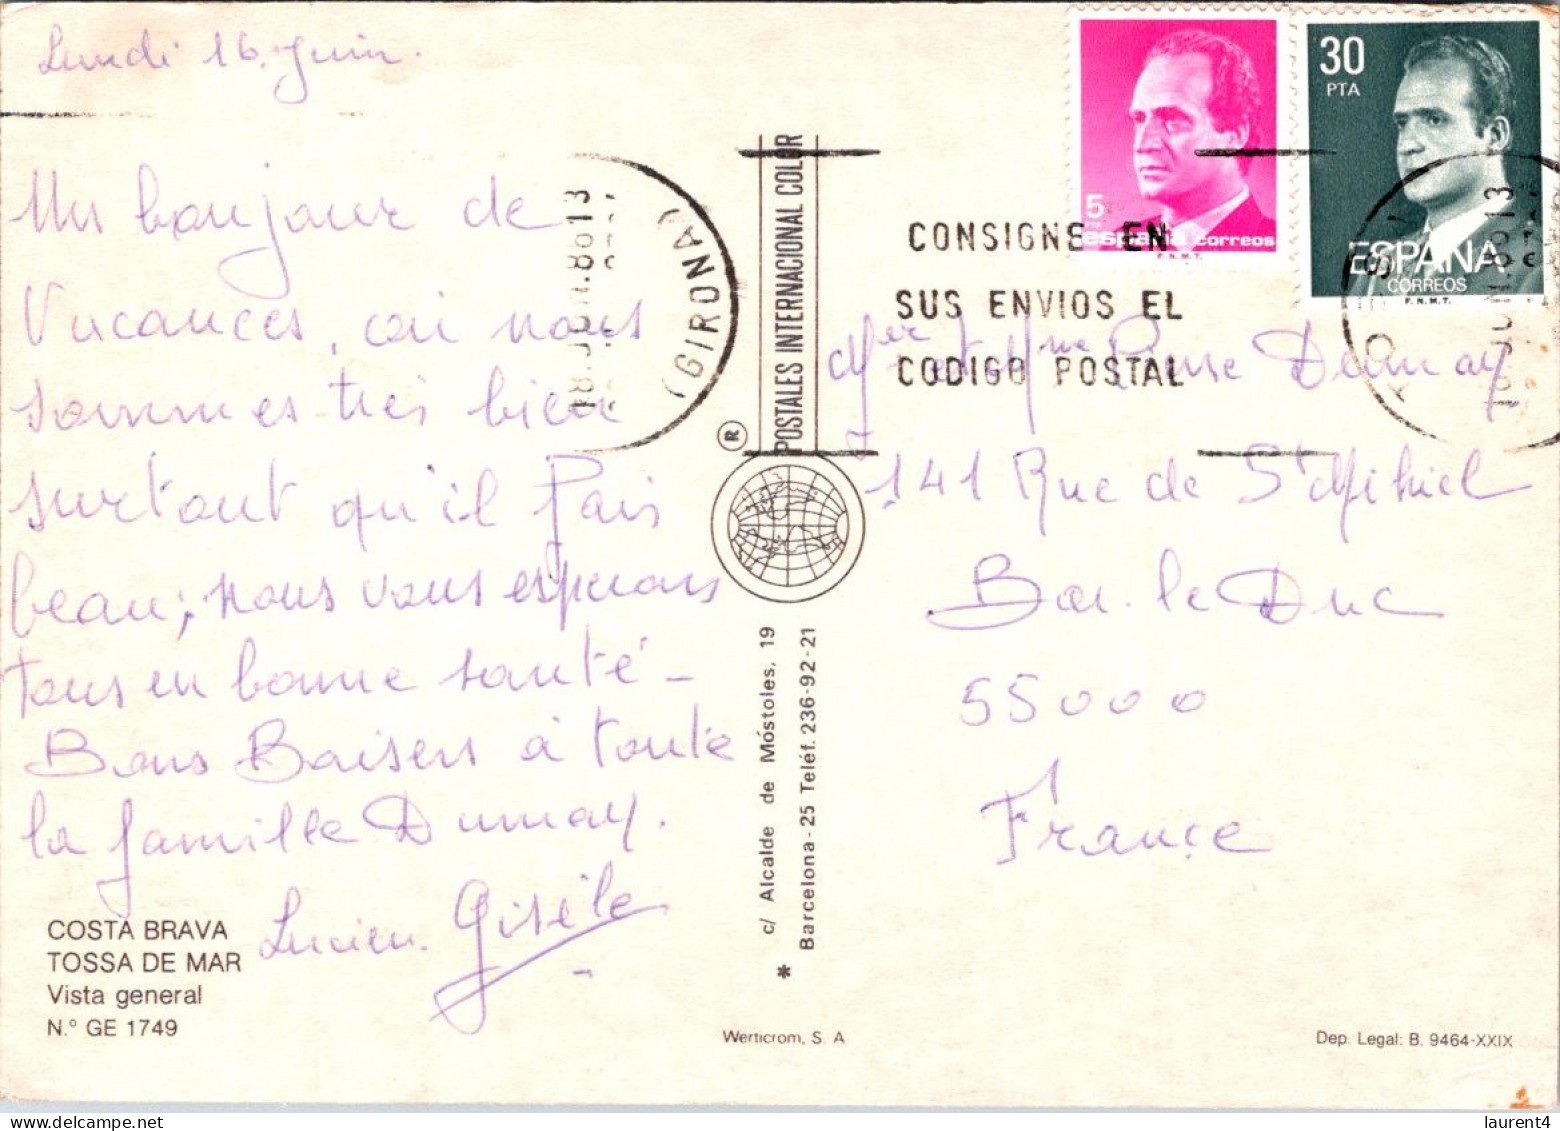 Lundi 16 Juin.
Un bonjour de
Vacances, où nous
sommes très bien
surtout qu'il fais
beau; nous vous esperons
tous en bonne santé -
Bons Baisers à toute
la famille Dumay.
Lucien. Gisèle
COSTA BRAVA
TOSSA DE MAR
Vista general
N.º GE 1749
18. JUN. 86 13
(GIRONA)
POSTALES INTERNACIONAL COLOR
®
c/ Alcalde de Móstoles, 19
Barcelona - 25 Teléf. 236-92-21
*
Werticrom, S. A
5
españa correos
F.N.M.T.
30
PTA
ESPAÑA
CORREOS
F.N.M.T.
CONSIGNE EN
SUS ENVIOS EL
CODIGO POSTAL
Mer et Mme Pierre Dumay
141 Rue de St Mihiel
Bar. le Duc
55000
France
Dep. Legal: B. 9464-XXIX
laurent4